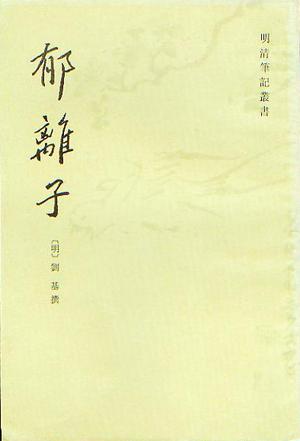 明清筆記叢書
郁離子
〔明〕劉基撰